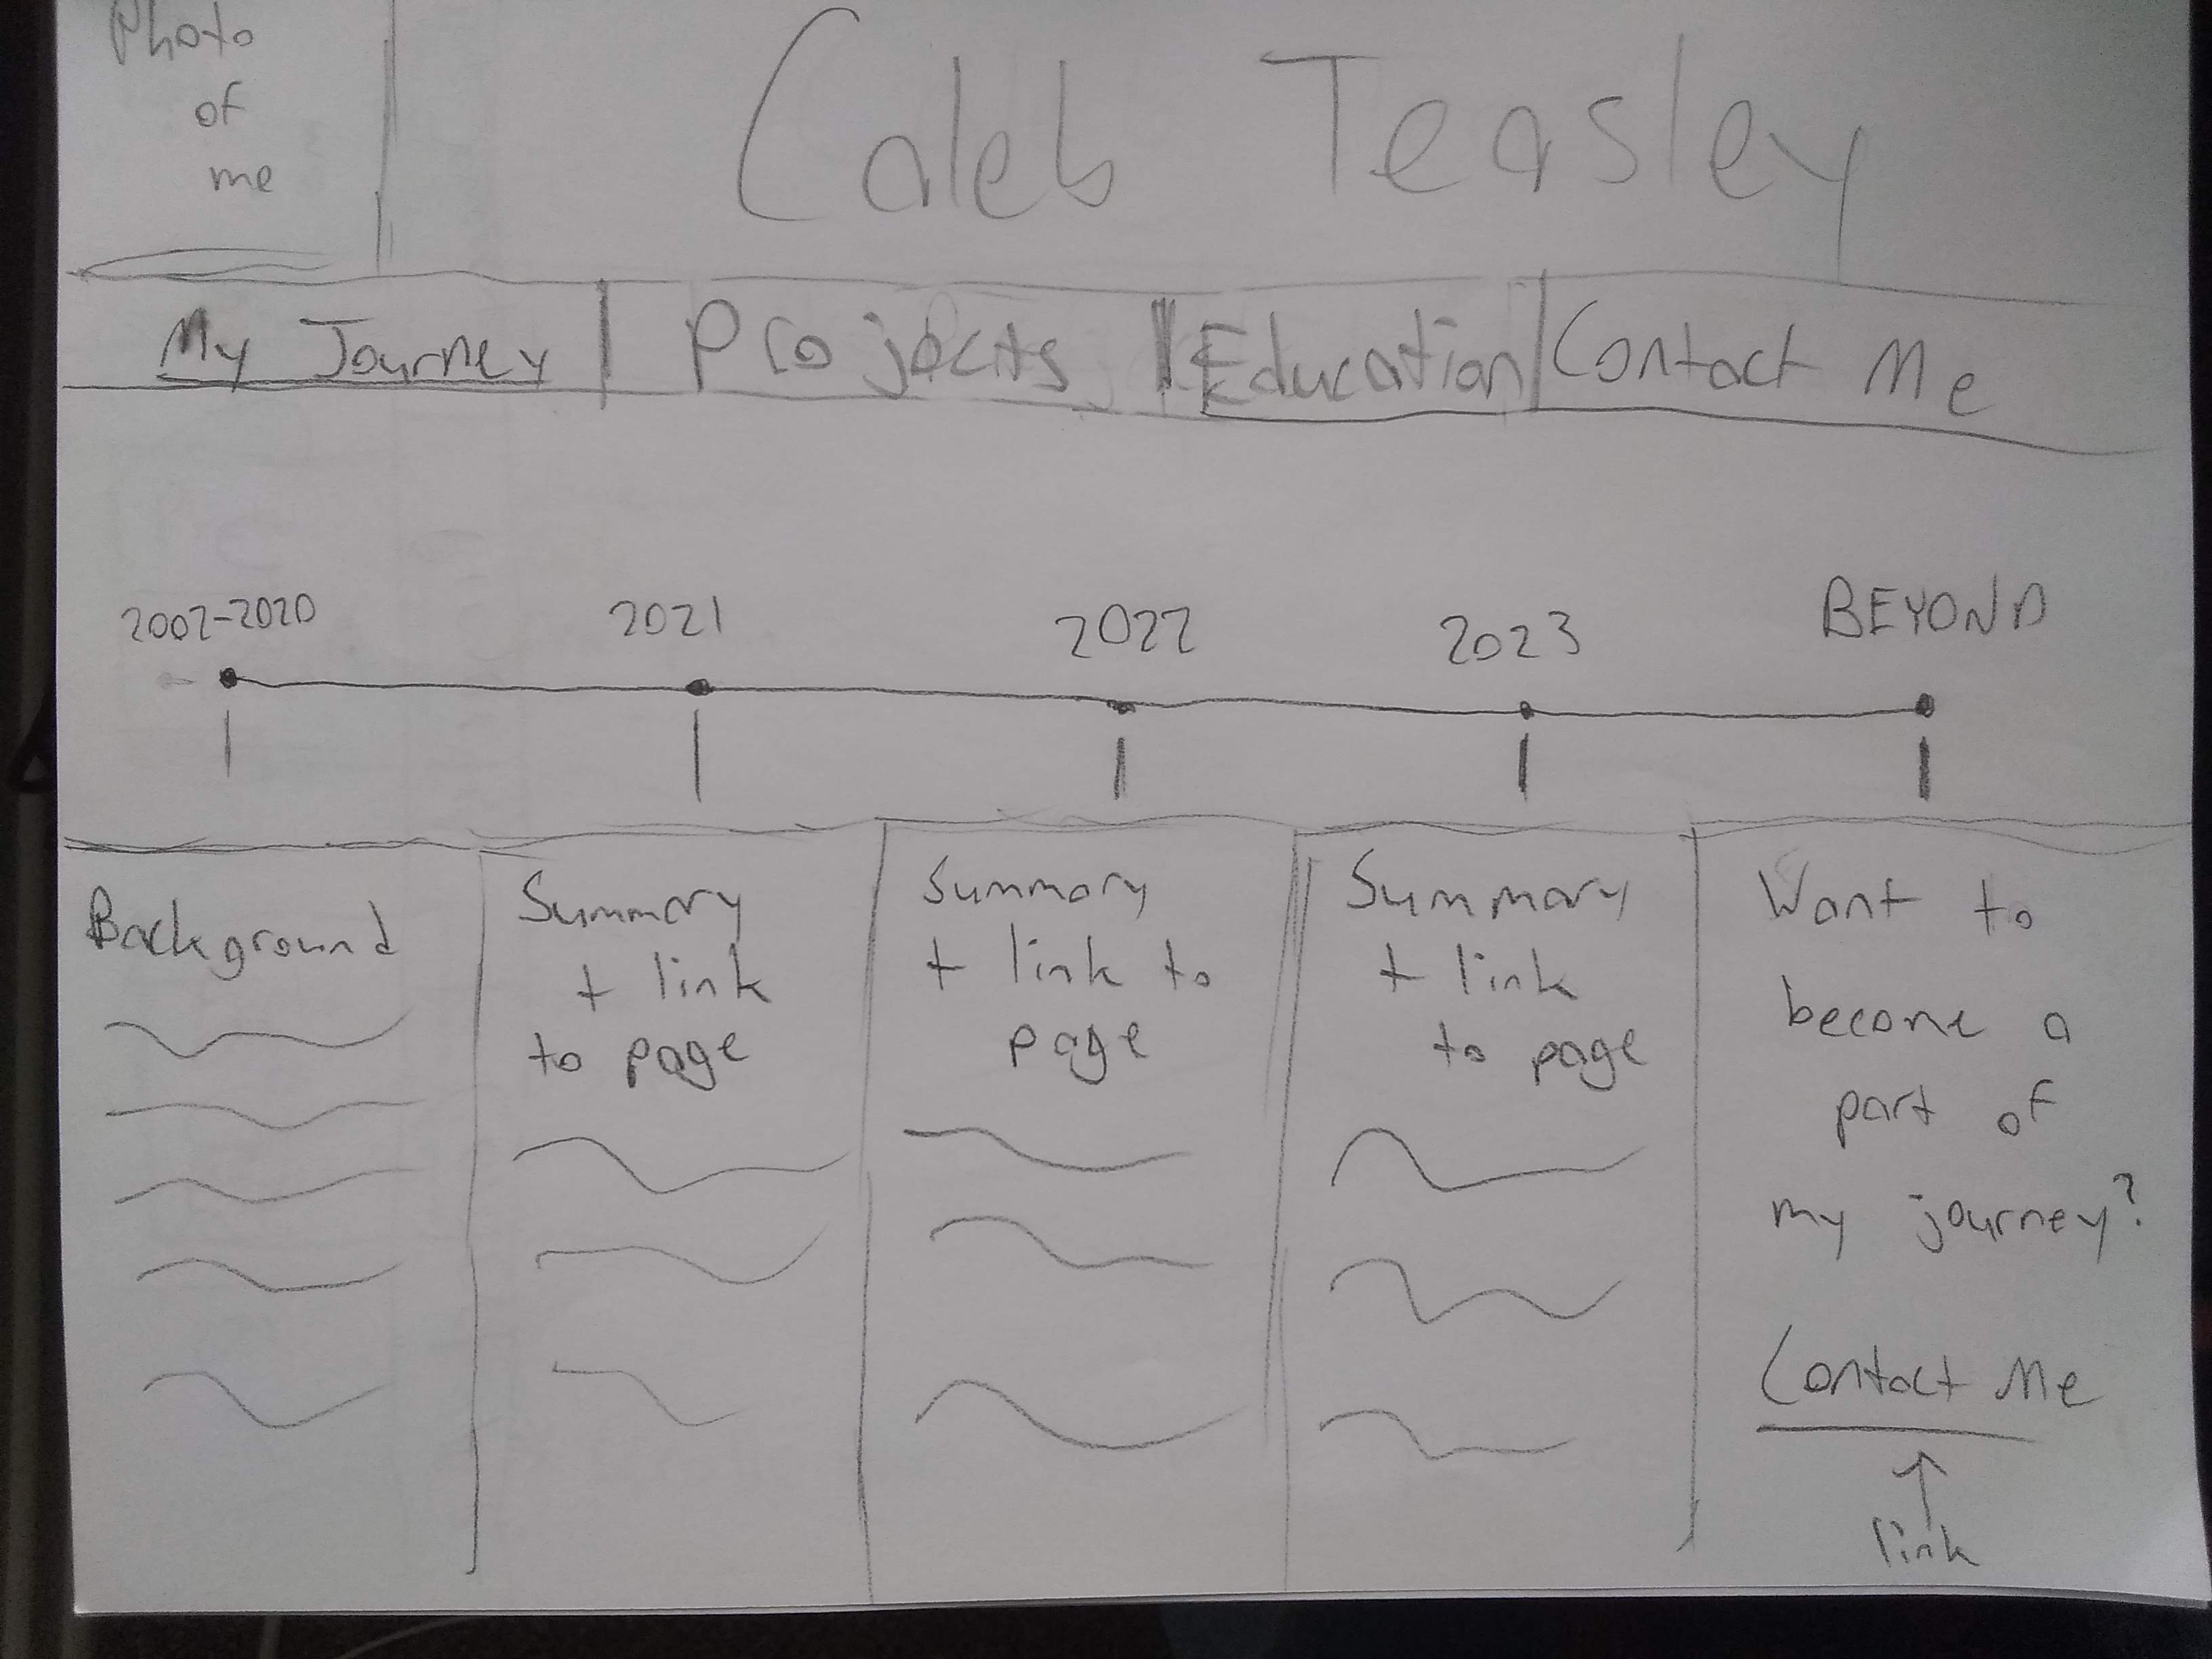 Photo
of
me
Caleb Teasley
My Journey
Projects
Education
Contact Me
2002-2020
2021
2022
2023
BEYOND
Background
Summary
+ link
to page
Summary
+ link to
page
Summary
+ link
to page
Want to
become a
part of
my journey?
Contact Me
link